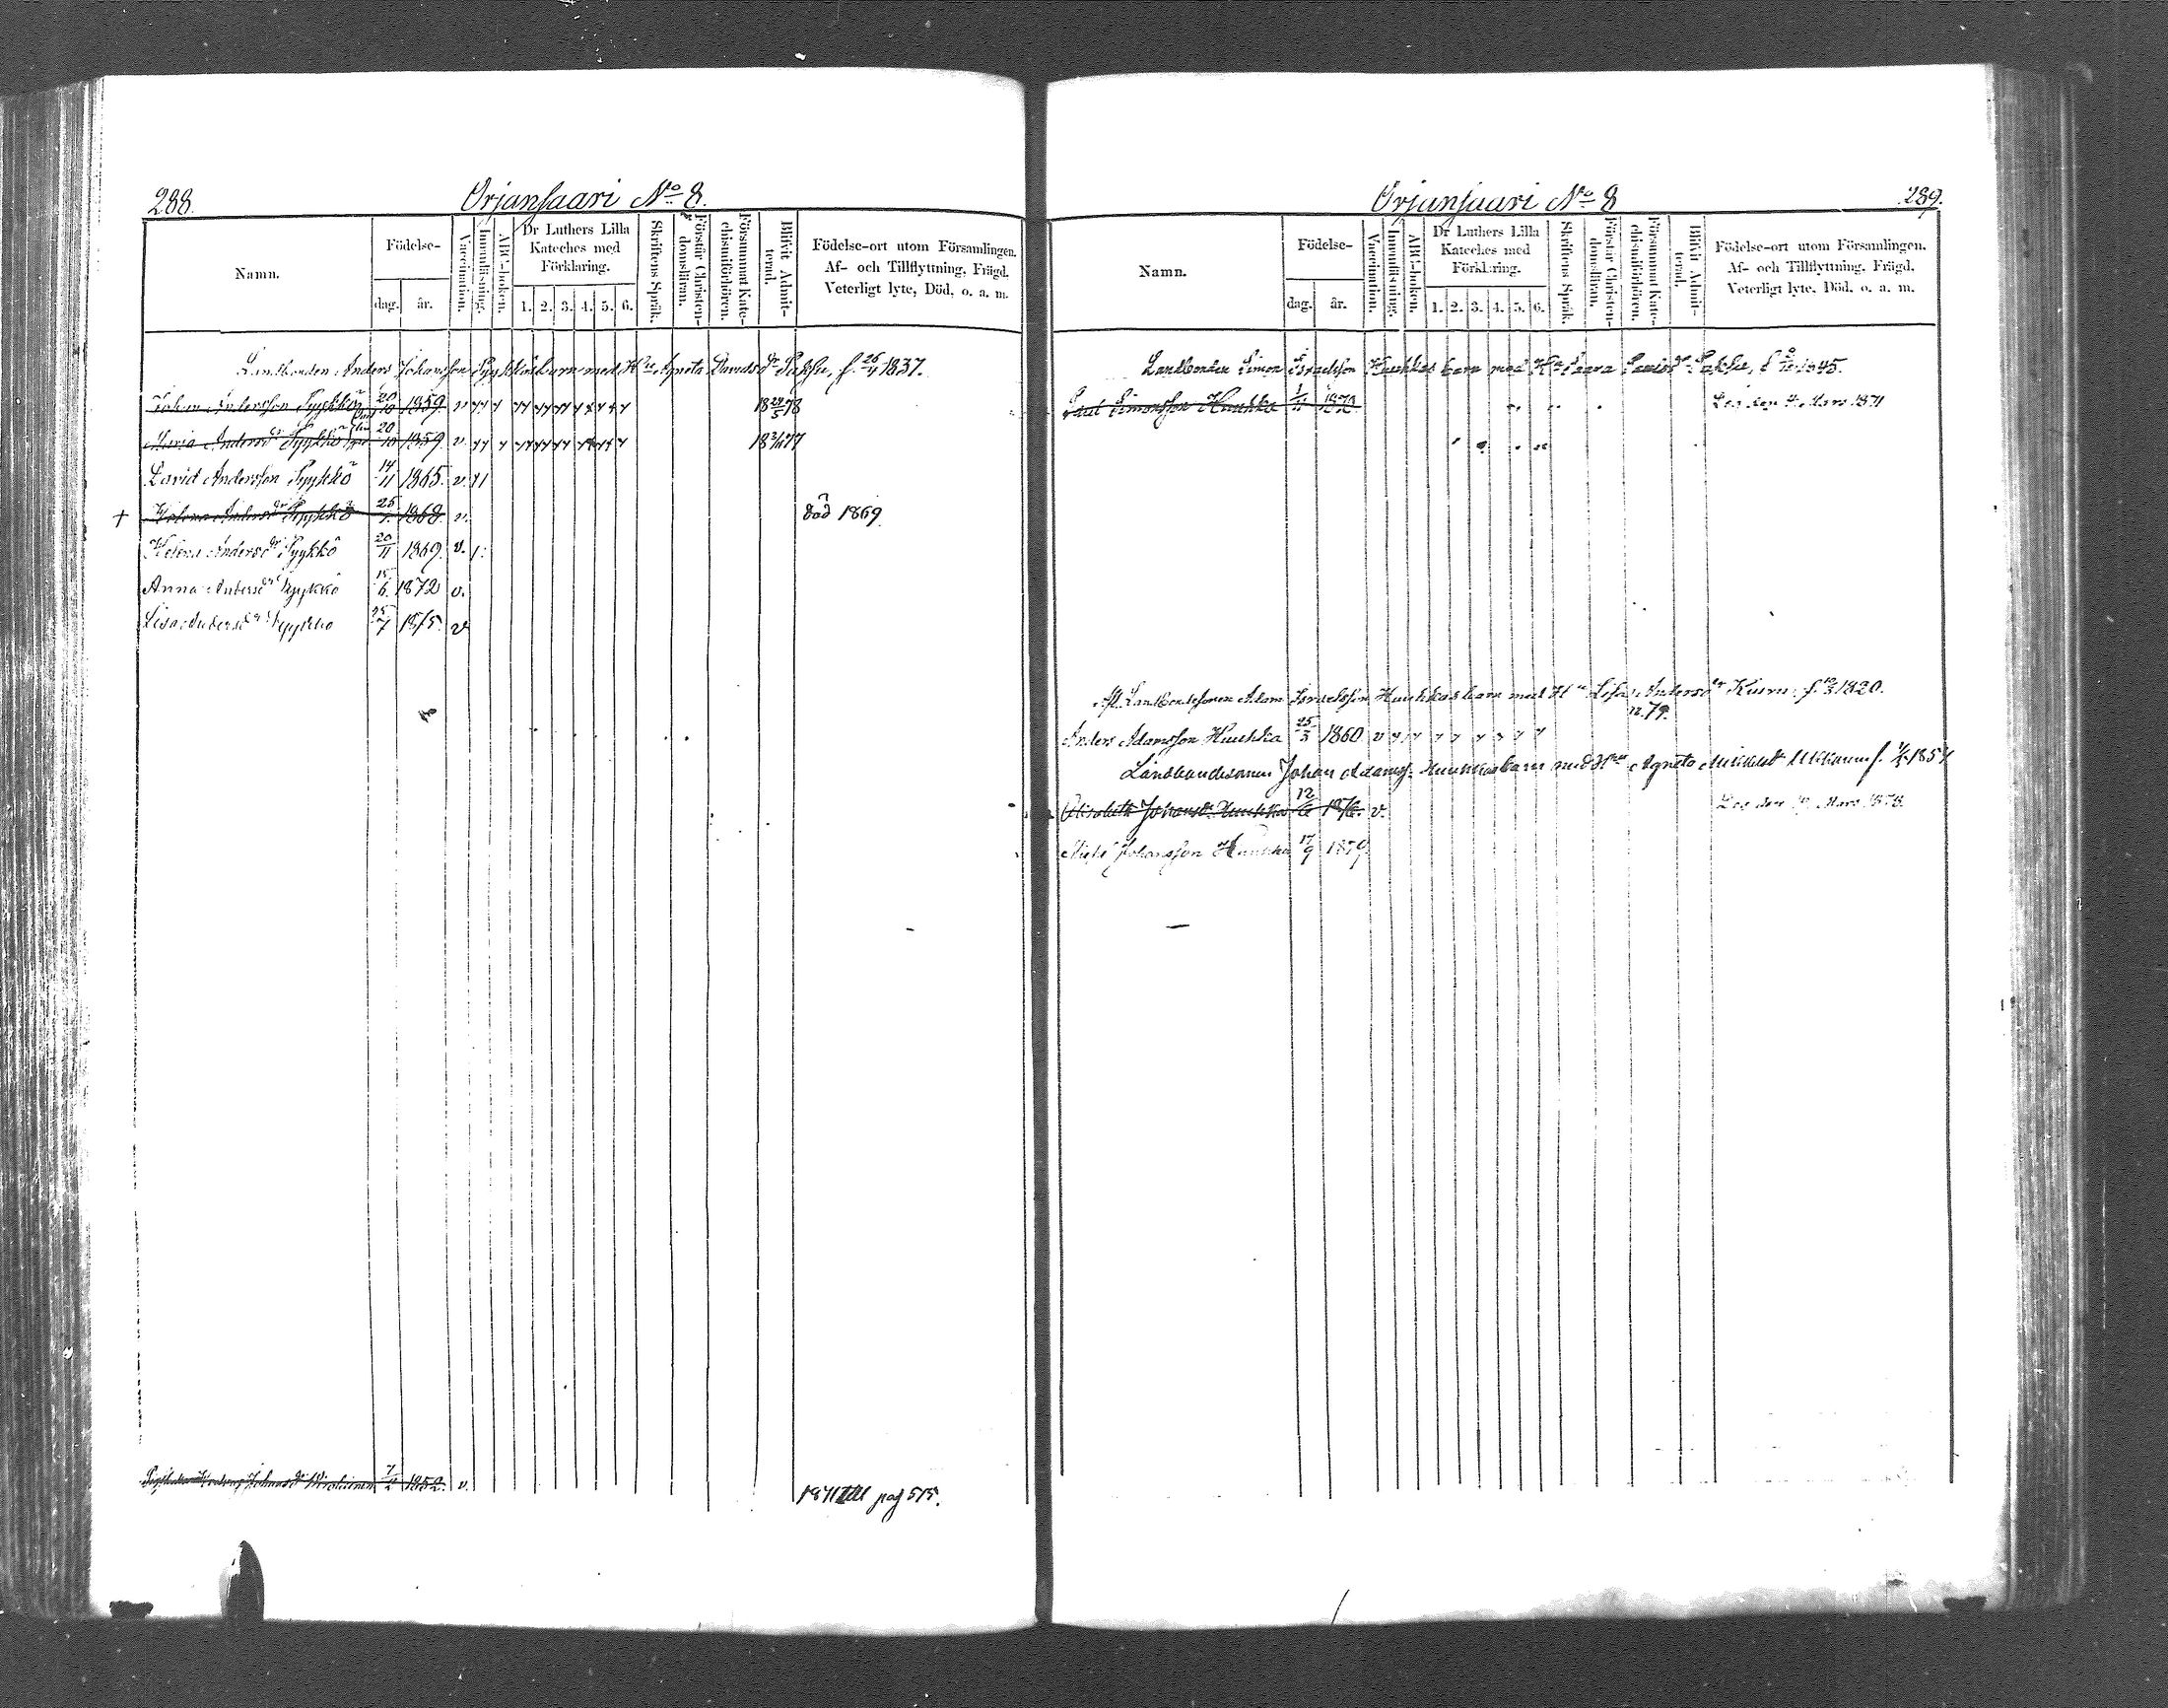 288.
Orjansaari No 8.
Namn.
Födelse-
dag.
år.
Vaccination.
Innanläsning.
ABC-boken.
Dr Luthers Lilla
Kateches med
Förklaring.
1. 2. 3. 4. 5. 6.
Skriftens Språk.
Förstår Christen-
domsläran.
Försummat Kate-
chismiförhören.
Blifvit Admit-
terad.
Födelse-ort utom Församlingen,
Af- och Tillflyttning, Frägd,
Veterligt lyte, Död, o. a. m.
Landbonden Anders Johansson Pykkös barn med Hu Agneta Davidsdr f. 26/4 1837.
Johan Andersson Pykkö 20/10 1859 v 18 24/5 78
Maria Andersdr Pykkö 20/10 1859. v. 18 77
David Andersson Pykkö 14/11 1865. v.
+ Helena Andersdr Pykkö 1868. v. död 1869.
Helena Andersdr Pykkö 20/11 1869. v.
Anna Andersdr Pykkö 15/6. 1872 v.
Lisa Andersdr Pykkö 1875. v
Johansdr 7/2 1852. v. 1871 till pag 515.
289.
Orjansaari No 8
Namn.
Födelse-
dag.
år.
Vaccination.
Innanläsning.
ABC-boken.
Dr Luthers Lilla
Kateches med
Förklaring.
1. 2. 3. 4. 5. 6.
Skriftens Språk.
Förstår Christen-
domsläran.
Försummat Kate-
chismiförhören.
Blifvit Admit-
terad.
Födelse-ort utom Församlingen,
Af- och Tillflyttning, Frägd,
Veterligt lyte, Död, o. a. m.
Landbonden Simon Israelsson Huuhkas barn med Hu Saara 1845.
Paul Simonsson Huuhka 1870. Mars 1871
Afl. Landbondesonen Adam Israelsson Huuhkas barn med Hu Lisa Andersdr f. 1820.
n. 79.
Anders Adamsson Huuhka 25/3 1860 v
Landbondesonen Johan Adamss. Huuhkas barn med Hu Agneta f. 1857
Elisabeth Johansdr Huuhka 12/6 1876. v. Mars 1878.
Johansson Huuhka 17/9 1879